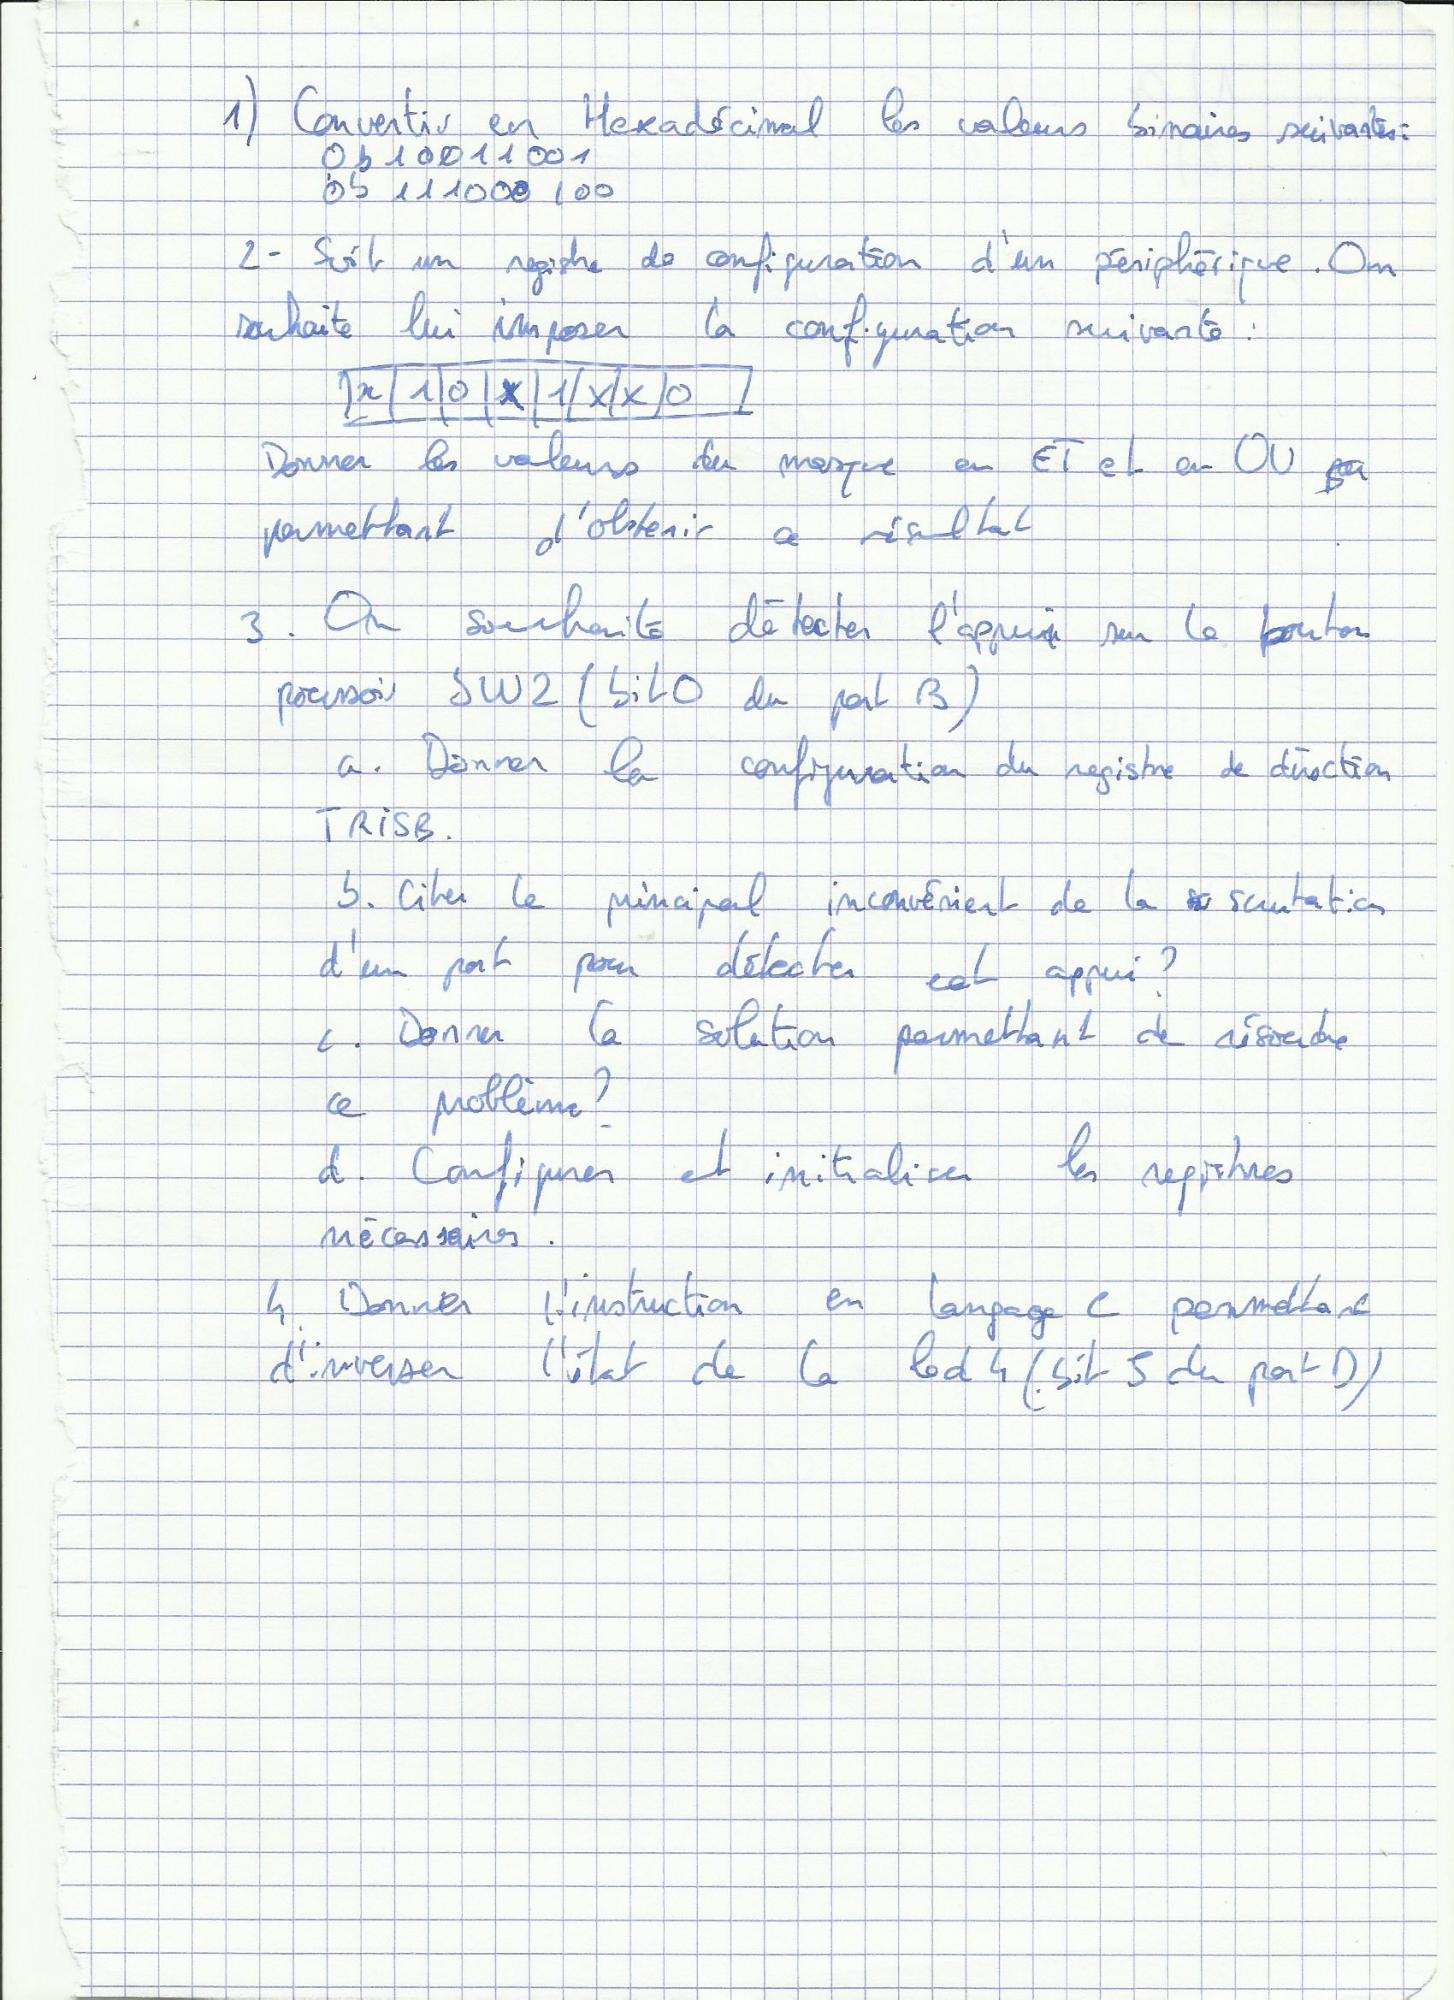 1) Convertir en Hexadécimal les valeurs binaires suivantes:
0b10011001
0b 111000100
2- Soit un registre de configuration d'un périphérique. On
souhaite lui imposer la configuration suivante :
x|1|0|x|1|x|x|0
Donner les valeurs du masque en ET et en OU
permettant d'obtenir ce résultat
3. On souhaite détecter l'appui sur le bouton
poussoir SW2 (bit0 du port B)
a. Donner la configuration du registre de direction
TRISB.
b. Citer le principal inconvénient de la scrutation
d'un port pour détecter cet appui?
c. Donner la solution permettant de résoudre
ce problème?
d. Configurer et initialiser les registres
nécessaires.
4. Donner l'instruction en langage C permettant
d'inverser l'état de la led 4 (bit 5 du port D)